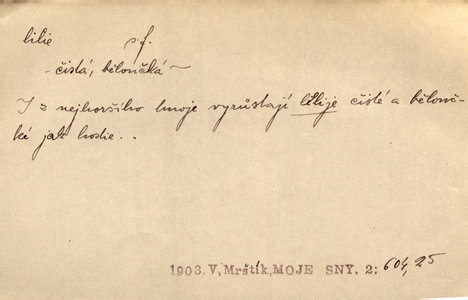 lilie s.f.
- čistá, běloučká ~
I z nejhoršího hnoje vyrůstají lilije čisté a běлouč-
ké jak hostie..
1903. V, Mrštík, MOJE SNY. 2: 604, 25